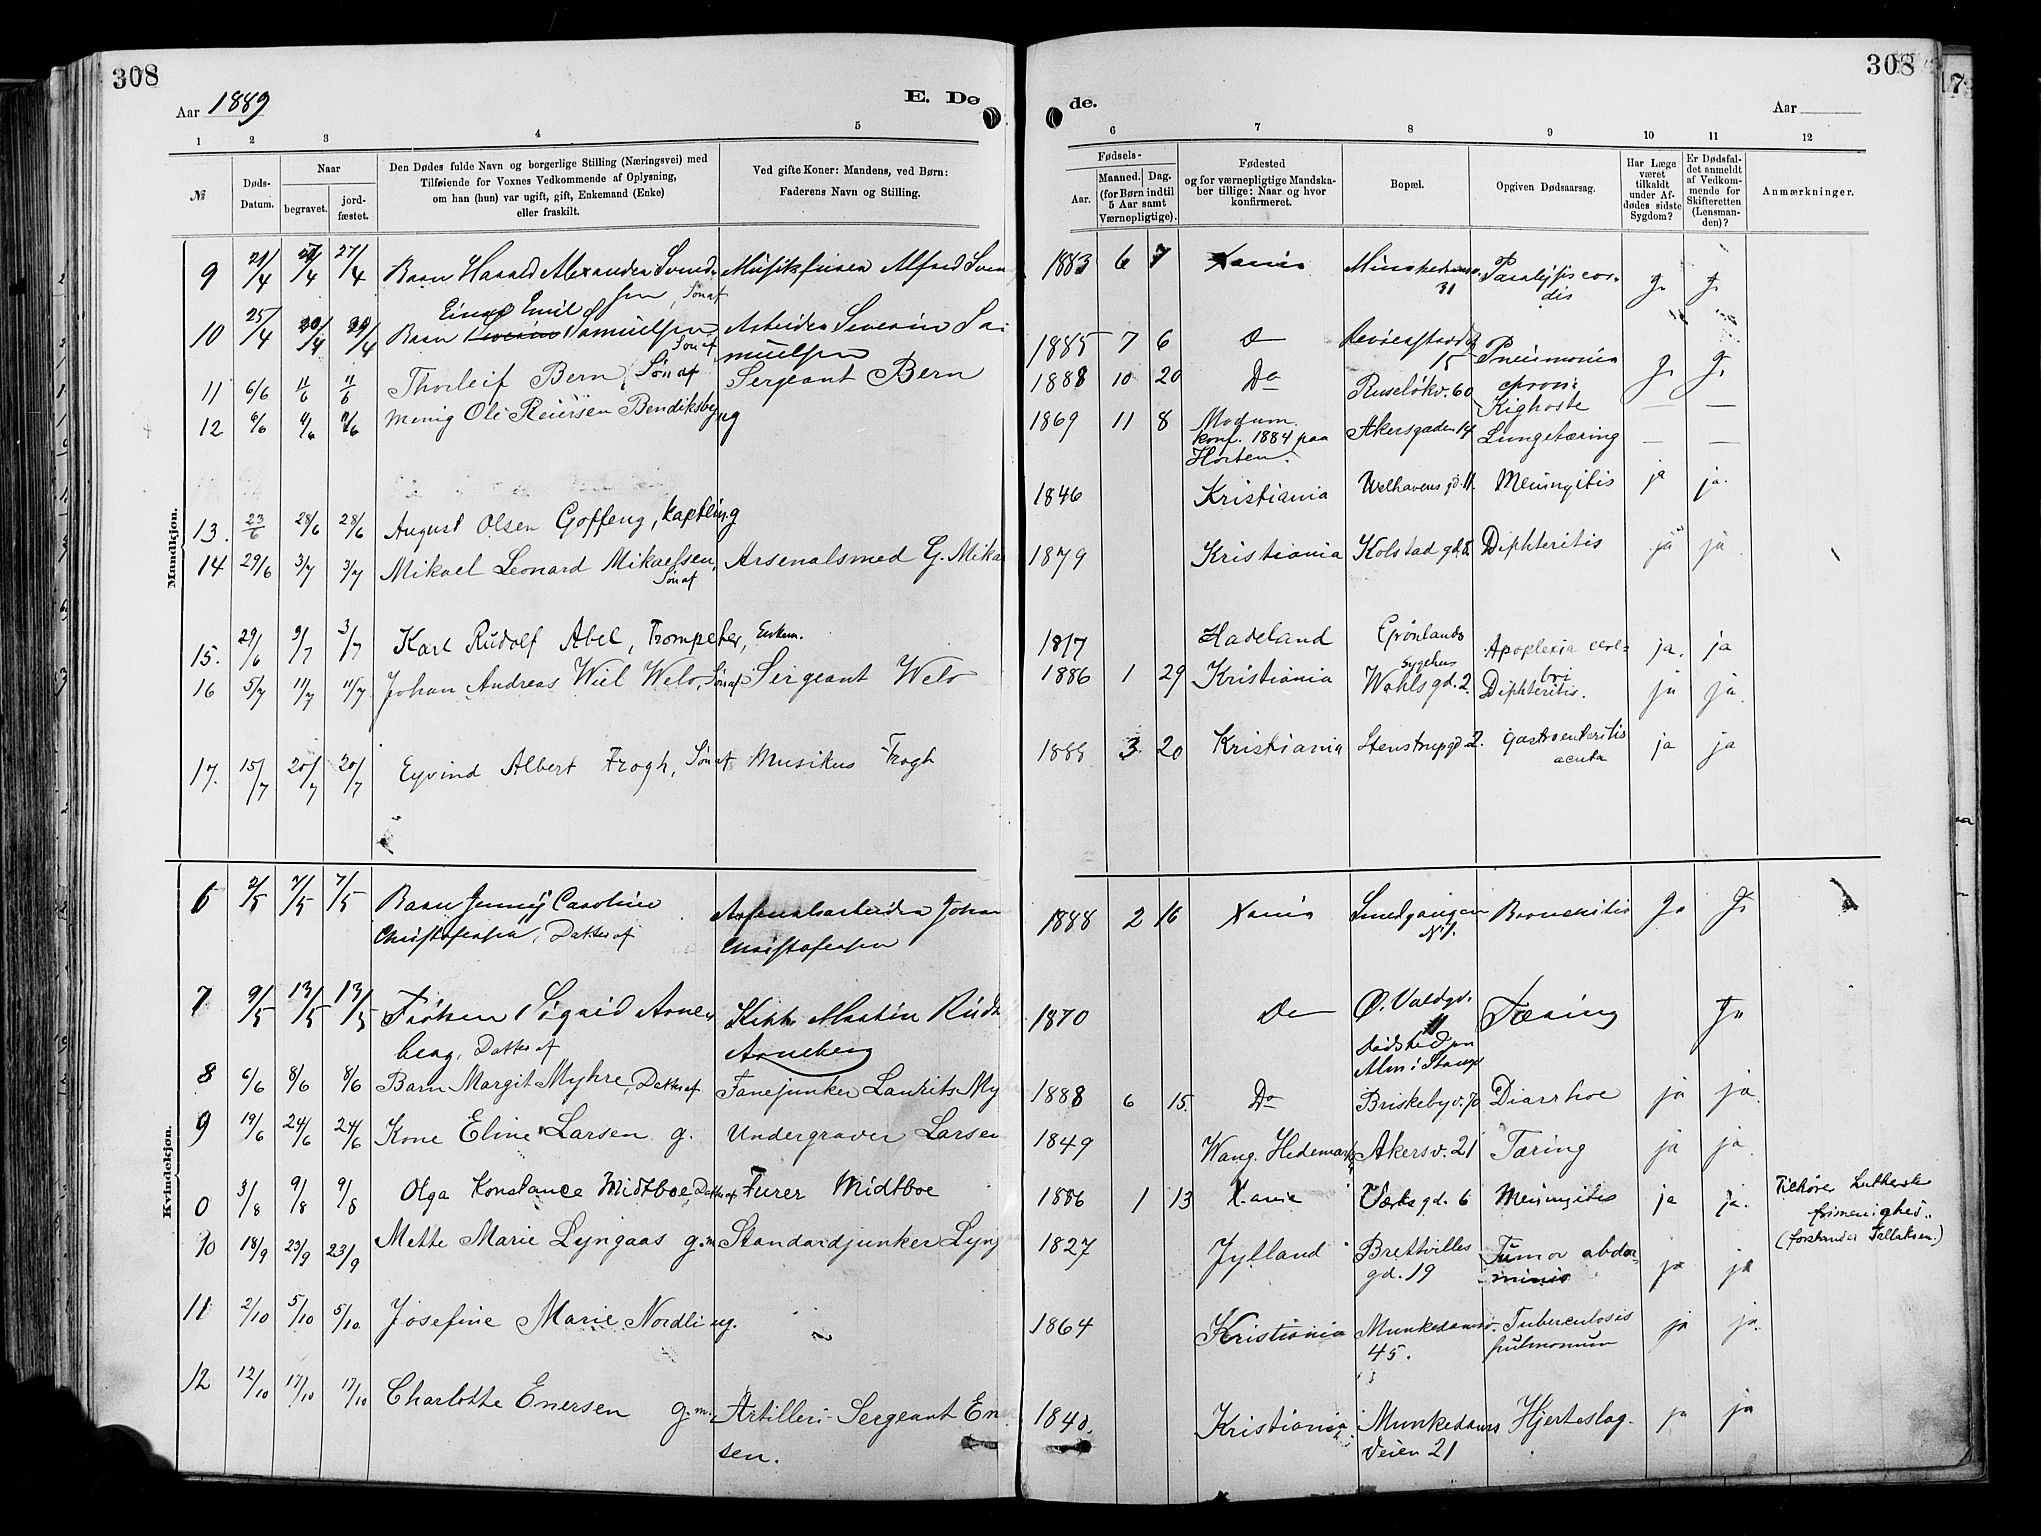 308
Aar 1889
E. Dø
1 2 3 4 5
№
Døds-
Datum.
Naar
begravet.
jord-
fæstet.
Den Dødes fulde Navn og borgerlige Stilling (Næringsvei) med
Tilføiende for Voxnes Vedkommende af Oplysning,
om han (hun) var ugift, gift, Enkemand (Enke)
eller fraskilt.
Ved gifte Koner: Mandens, ved Børn:
Faderens Navn og Stilling.
Mandkjøn.
9 21/4 27/4 27/4 Barn Harald Alexander Svend-
sen, Søn af
Alfred Sven
Einar Emil
10 25/4 30/4 30/4 Barn Samuelsen Søn af
Arbeider Severin Sa
muelsen
11 6/6 11/6 11/6 Thorleif Bern, Søn af Sergeant Bern
12 6/6 11/6 11/6 Menig Ole Reiersen Bendiksby
13. 23/6 28/6 28/6 August Olsen Goffeng,
14 29/6 3/7 3/7 Mikael Leonard Mikaelsen, Søn af
Arsenalsmed G. Mika
15. 29/6 3/7 3/7 Karl Rudolf Abel, Trompeter, Enkem.
16 5/7 11/7 11/7 Johan Andreas Wiel Welo, Søn af Sergeant Welo
17. 15/7 20/7 20/7 Eyvind Albert Frogh, Søn af Musikus Frogh
Kvindekjøn.
6 2/5 7/5 7/5 Barn Jenny Caroline
Christofersen, Datter af
Arsenalsarbeider Johan
Christofersen
7 9/5 13/5 13/5 Frøken Sigrid Arne-
berg, Datter af
Martin
Arneberg
8 6/6 8/6 8/6 Barn Margit Myhre, Datter af Fanejunker Laurits My
9 19/6 24/6 24/6 Kone Eline Larsen g. Undergraver Larsen
0 3/8 9/8 9/8 Olga Konstance Midtboe, Datter af Furer Midtboe
10 18/9 23/9 23/9 Mette Marie Lyngaas g.m. Standardjunker Lyng
11 2/10 5/10 5/10 Josefine Marie Nordling.
12 12/10 17/10 17/10 Charlotte Enersen g.m. Artilleri-Sergeant En
sen.
308
de.
Aar
6 7 8 9 10 11 12
Fødsels-
Aar.
Maaned. Dag.
(for Børn indtil
5 Aar samt
Værnepligtige).
Fødested
og for værnepligtige Mandska-
ber tillige: Naar og hvor
konfirmeret.
Bopæl.
Opgiven Dødsaarsag.
Har Læge
været
tilkaldt
under Af-
dødes sidste
Sygdom?
Er Dødsfal-
det anmeldt
af Vedkom-
mende for
Skifteretten
(Lensman-
den)?
Anmærkninger.
1883 6 7 Xania
31
Paralysis cor-
dis
Ja Ja
1885 7 6 Do
15
Pneumonia
Ja Ja
1888 10 20 Do Ruseløkv. 60
Kighoste
— —
1869 11 8 Modum.
konf. 1884 paa
Horten.
Akersgaden 14 Lungetæring — —
1846 Kristiania Welhavens gd. 11. Meningitis ja ja.
1879 Kristiania Kolstad gd. Diphteritis ja ja
1817 Hadeland Grønlands
Sygehus
Apoplexia cere-
bri
ja. ja
1886 1 29 Kristiania Wahls gd. 2. Diphteritis. ja ja.
1888 3 20 Kristiania Stenstrupgd. 2. Gastroenteritis
acuta
ja ja
1888 2 16 Xania Smedgangen
No 1.
Ja Ja
1870 Do Ø. Voldgd.
11
Tæring Ja
1888 6 15. Do Briskebyv. 70 Diarrhoe ja ja.
1849 Wang. Hedemark Akersv. 21 Tæring ja ja
1886 1 13 X.ania Værks gd. 6 Meningitis ja ja.
Tilhører Lutherske
frimenighed.
(forstander Tellaksen.)
1827 Jylland Brettvilles
gd. 19
Tumor abdo-
minis
ja ja
1864 Kristiania Munkedamsv.
45.
Tuberculosis
pulmonum
ja ja.
1840. Kristiania. Munkedams
Veien 21
Hjerteslag. ja ja